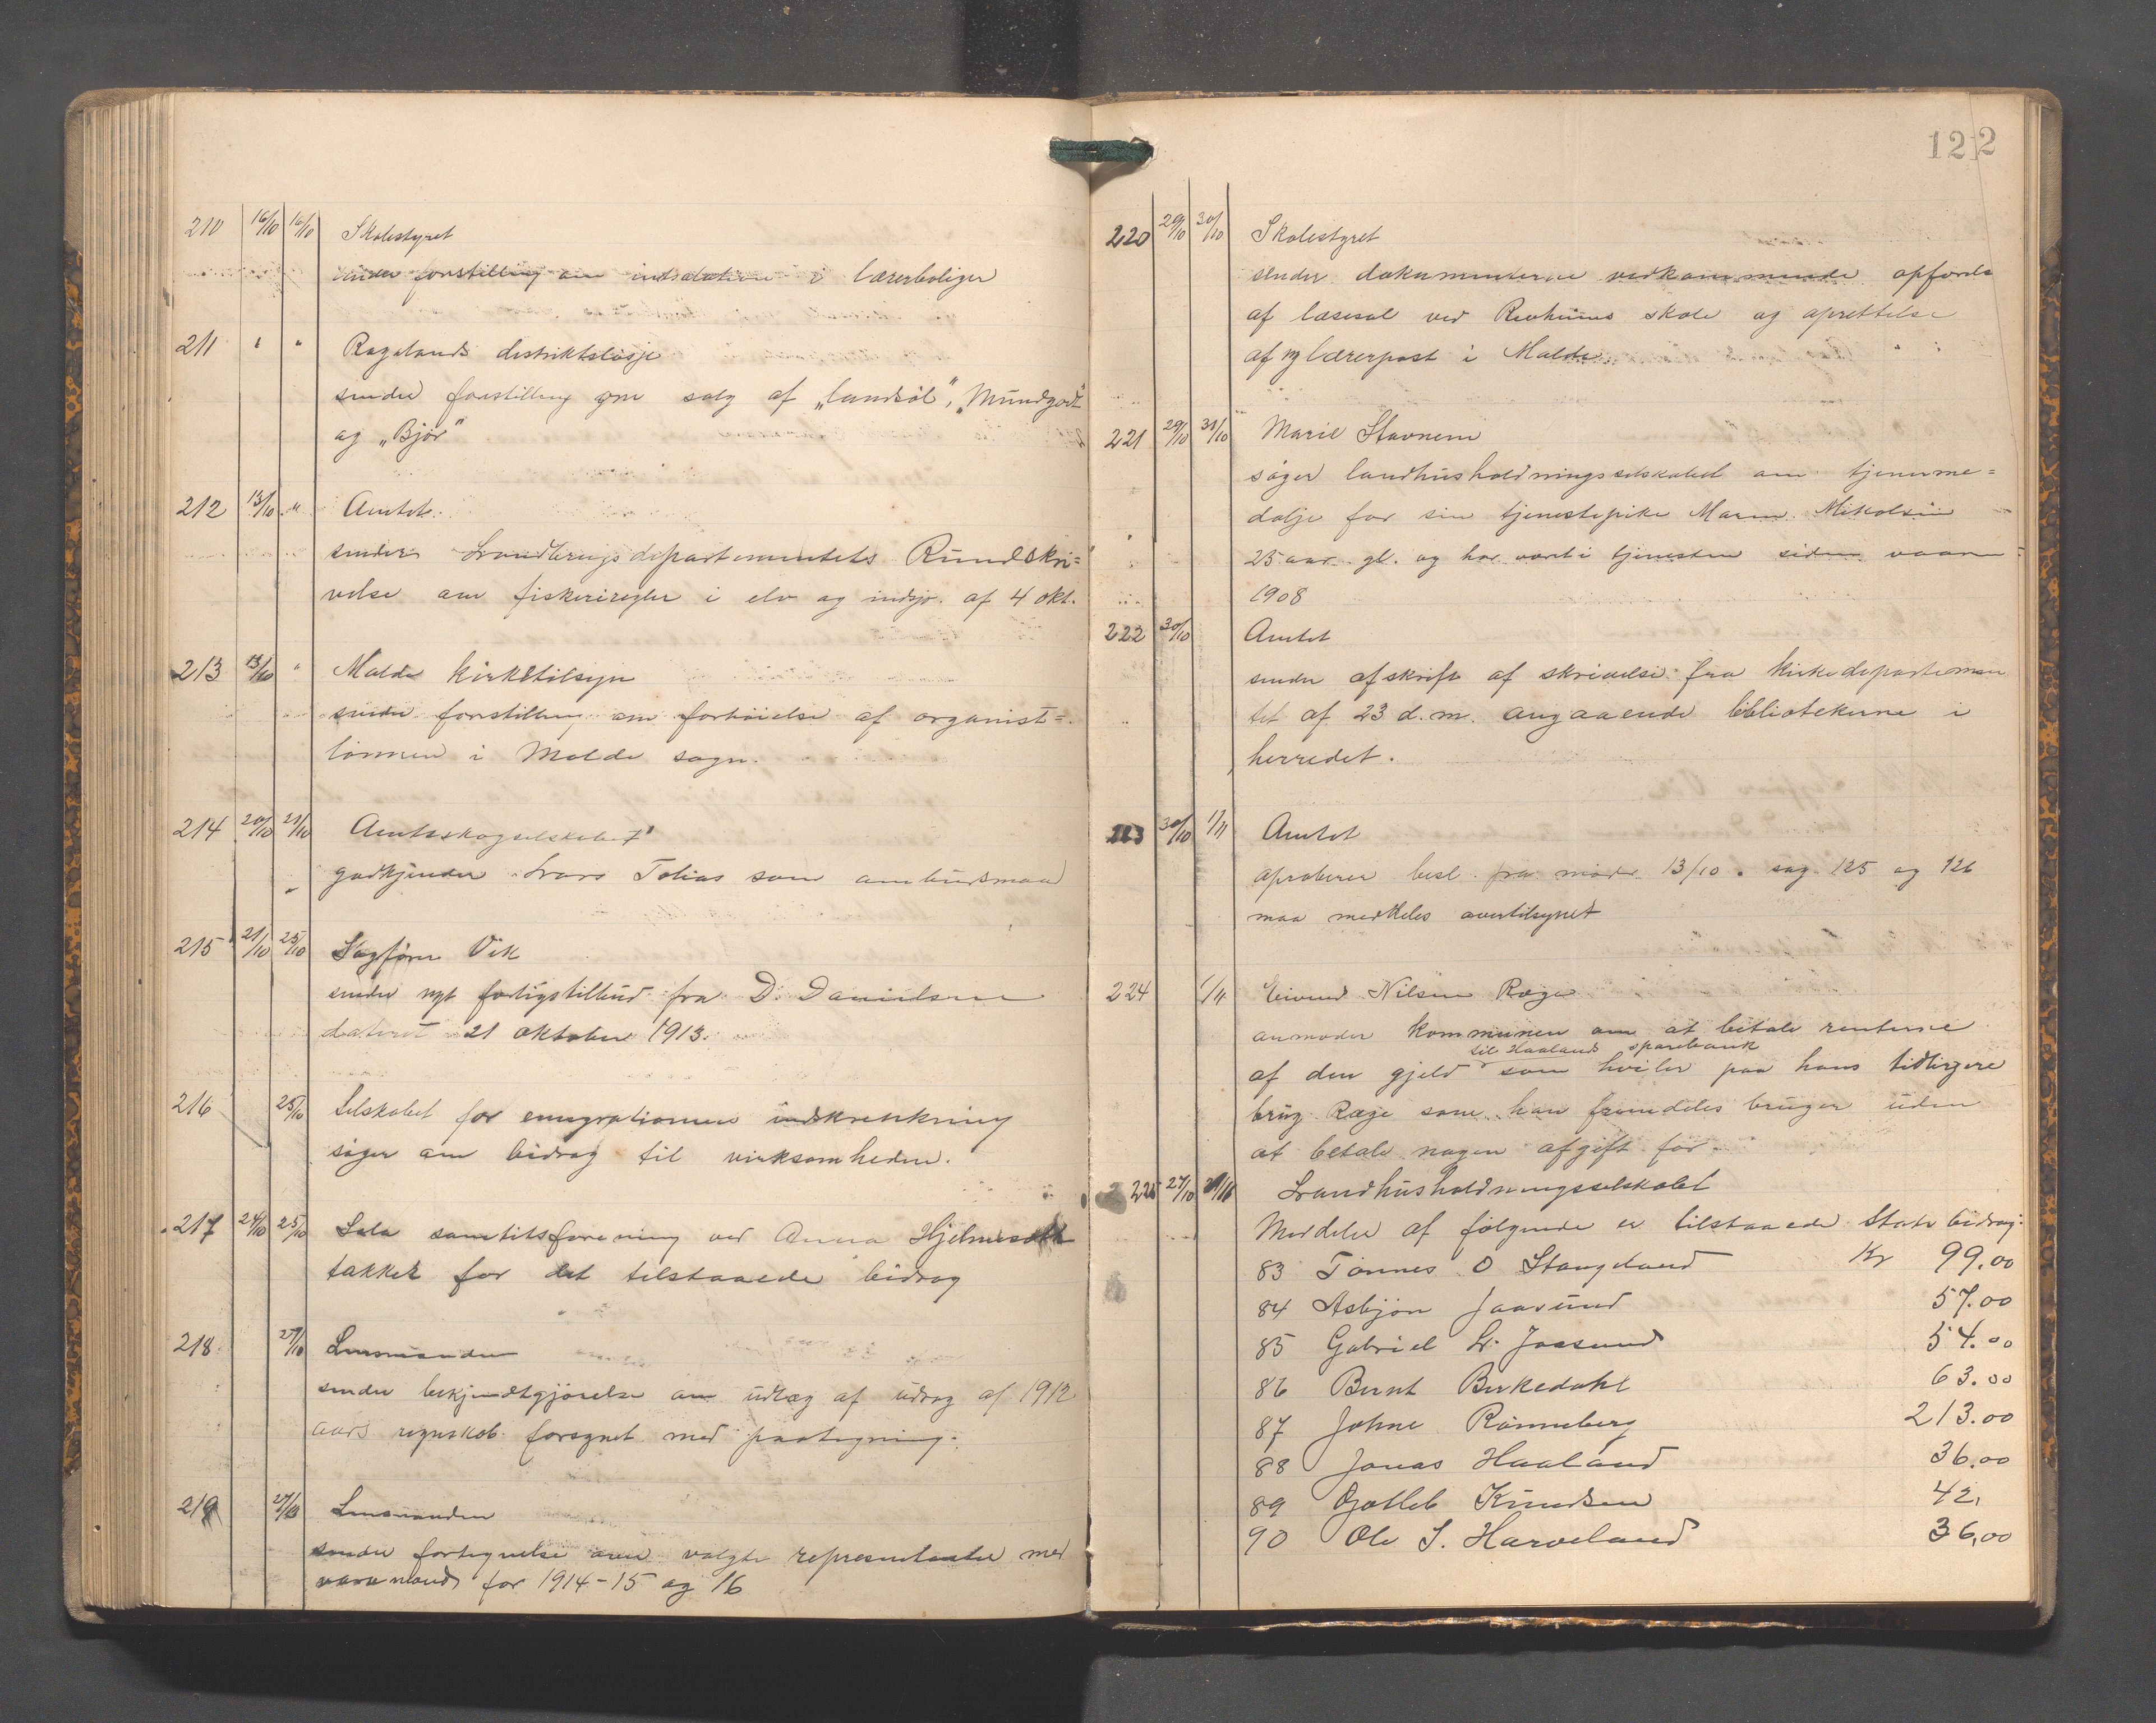 210 16/10 16/10 Skolestyret
sender forestilling om indsættelse i lærerboliger
211 " " Rogalands distriktslosje
sender forestilling om salg af „landsøl", „Mundgodt"
og „Bjør"
212 13/10 " Amtet
sender Landbrugsdepartementets Rundskri=
velse om fiskeriregler i elv og indsjø. af 4 okt.
213 13/10 " Malde kirketilsyn
sender forestilling om forhøielse af organist=
lønnen i Malde sogn.
214 20/10 21/10 Amtsskogselskabet
" godkjender Lars Tobias som ombudsmand
215 21/10 25/10 Sagfører Vik
sender nyt forligstilbud fra D. Danielsen
dateret 21 oktober 1913.
216 25/10 Selskabet for emigrationens indskrenkning
søger om bidrag til virksomheden.
217 24/10 25/10 Sola sanitetsforening ved Anna
takker for det tilstaaede bidrag
218 27/10 Lensmanden
sender bekjendtgjørelse om udlæg af udrag af 1912
aars regnskab forsynet med paategning.
219 27/10 Lensmanden
sender fortegnelse over valgte representanter med
varamænd for 1914-15 og 16
122
220 29/10 30/10 Skolestyret
sender dokumenterne vedkommende opførelse
af læsesal ved Revheims skole og oprettelse
af ny lærerpost i Malde
221 29/10 31/10 Marie Stavnem
søger landhusholdningsselskabet om tjenerme=
dalje for sin tjenestepike Maren Nikolsen
25 aar gl. og har vært i tjenesten siden vaaren
1908
222 30/10 Amtet
sender afskrift af skrivelse fra kirkedepartemen
tet af 23 d.m. angaaende bibliotekerne i
herredet.
223 30/10 1/11 Amtet
aproberer besl. fra møde 13/10. sag 125 og 126
maa meddeles overtilsynet
224 1/11 Eivind Nilsen Ræge
anmoder kommunen om at betale renterne
til Haaland sparebank
af den gjeld som hviler paa hans tidligere
brug Ræge som han fremdeles bruger uden
at betale nogen afgift for.
225 27/10 Landhusholdningsselskabet
Meddeler af følgende er tilstaaede Statsbidrag:
83 Tønnes O Stangeland Kr 99.00
84 Asbjørn Jaasund 57.00
85 Gabriel L. Jaasund 54.00
86 Bernt Birkedahl 63.00
87 Johne Rønneberg 213.00
88 Jonas Haaland 36.00
89 Gotleb Knudsen 42,
90 Ole S. Harveland 36,00